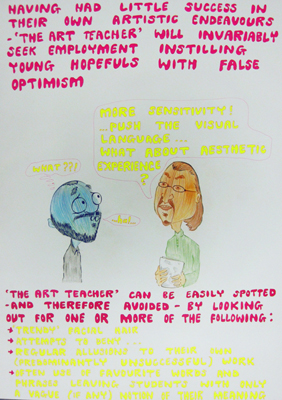 HAVING HAD LITTLE SUCCESS IN
THEIR OWN ARTISTIC ENDEAVOURS
-'THE ART TEACHER' WILL INVARIABLY
SEEK EMPLOYMENT INSTILLING
YOUNG HOPEFULS WITH FALSE
OPTIMISM
MORE SENSITIVITY!
...PUSH THE VISUAL
LANGUAGE...
WHAT ABOUT AESTHETIC
EXPERIENCE
?
WHAT???
'THE ART TEACHER' CAN BE EASILY SPOTTED
-AND THEREFORE AVOIDED- BY LOOKING
OUT FOR ONE OR MORE OF THE FOLLOWING:
* FACIAL HAIR
* ATTEMPTS TO
* REGULAR ALLUSIONS TO THEIR OWN
(PREDOMINANTLY UNSUCCESSFUL) WORK
* OFTEN USE OF FAVOURITE WORDS AND
PHRASES LEAVING STUDENTS WITH ONLY
A VAGUE (IF ANY) NOTION OF THEIR MEANING